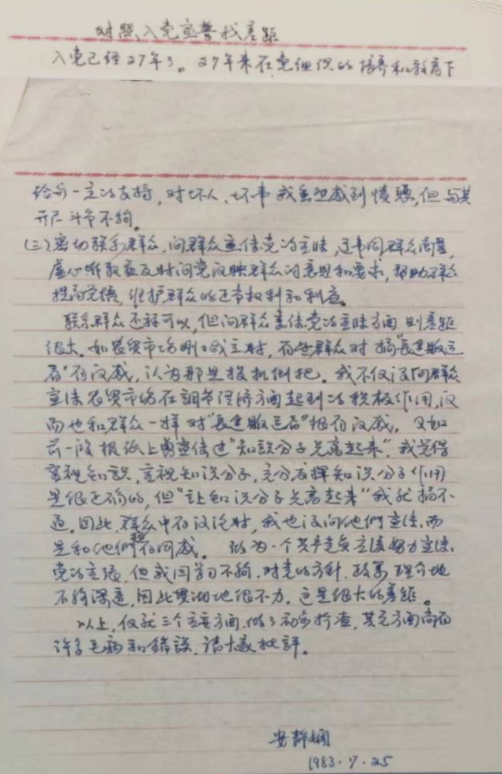 对照入党宣誓找差距
入党已经27年了。27年来在党组织的培养和教育下
给予一定的支持，对坏人、坏事我虽然感到愤慨，但与其
开展斗争不够。
(三)密切联系群众，向群众宣传党的主张，遇事同群众商量，
虚心听取并及时向党反映群众的意见和要求，帮助群众
提高觉悟，维护群众的正当权利和利益。
联系群众还可以，但向群众宣传党的主张方面则差距
很大。如农贸市场刚成立时，有些群众对搞“长途贩运
者”有反感，认为那是投机倒把。我不仅没向群众
宣传农贸市场在调节经济方面起到的积极作用，反
而也和群众一样对“长途贩运者”很有反感。又如
前一段报纸上曾宣传过“知识分子先富起来”，我觉得
重视知识，重视知识分子，充分发挥知识分子作用
是很正确的，但“让知识分子先富起来”我就搞不
通。因此群众中有议论时，我也没向他們宣传，而
是和他們有同感。做为一个共产党员应该努力宣传
党的主张，但我因学习不够，对党的方针，政策理解地
不够深透，因此贯彻地很不力，这是很大的差距。
以上，仅就三个主要方面，做了初步检查，其它方面尚有
许多毛病和错误，请大家批評。
安静娴
1983.7.25